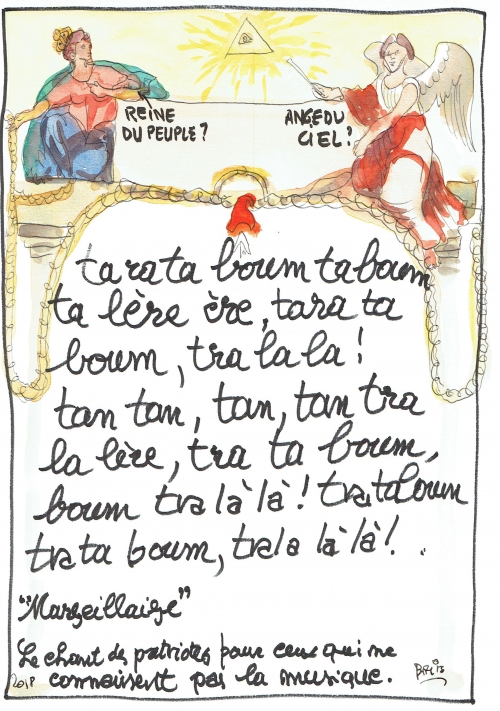 REINE
DU PEUPLE?
ANGE DU
CIEL?
tarata boum taboum
ta lère ère, tara ta
boum, tra la la!
tan tan, tan, tan tra
la lère, tra ta boum,
boum tra là là! trataboum
trata boum, trala là là!
"Marseillaise"
Le chant des patriotes pour ceux qui ne
connaissent pas la musique.
2018